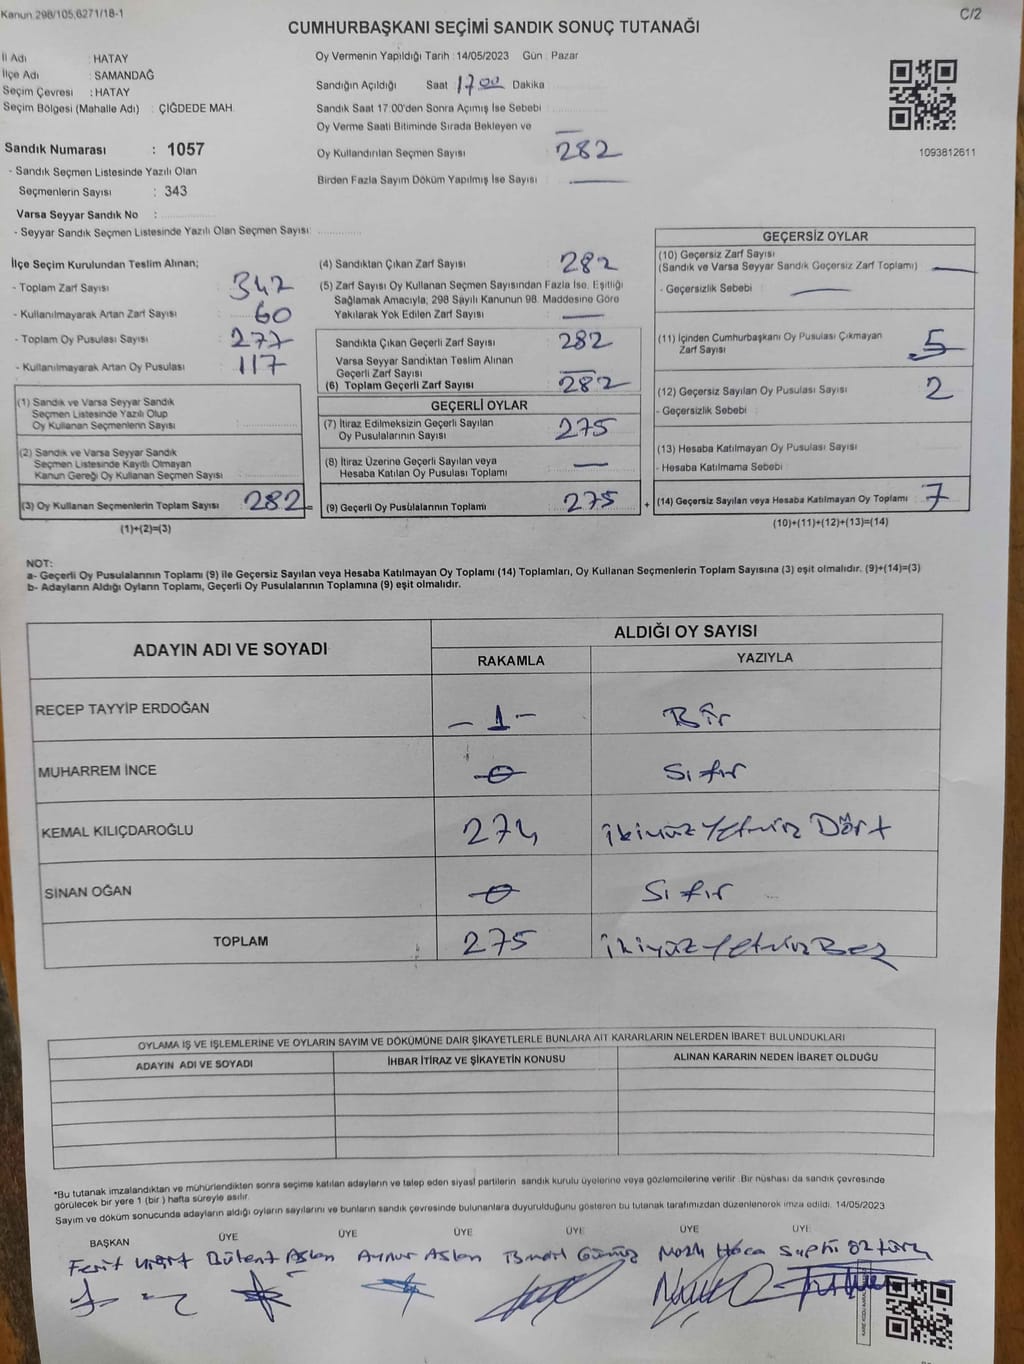 Kanun 298/105,6271/18-1
C/2
CUMHURBAŞKANI SEÇİMİ SANDIK SONUÇ TUTANAĞI
İl Adı : HATAY
İlçe Adı : SAMANDAĞ
Seçim Çevresi : HATAY
Seçim Bölgesi (Mahalle Adı) : ÇİĞDEDE MAH.
Sandık Numarası : 1057
- Sandık Seçmen Listesinde Yazılı Olan
Seçmenlerin Sayısı : 343
Varsa Seyyar Sandık No :
- Seyyar Sandık Seçmen Listesinde Yazılı Olan Seçmen Sayısı:
Oy Vermenin Yapıldığı Tarih : 14/05/2023 Gün : Pazar
Sandığın Açıldığı Saat 17.00 Dakika
Sandık Saat 17:00'den Sonra Açımış İse Sebebi
Oy Verme Saati Bitiminde Sırada Bekleyen ve —
Oy Kullandırılan Seçmen Sayısı 282
Birden Fazla Sayım Döküm Yapılmış İse Sayısı —
1093812611
İlçe Seçim Kurulundan Teslim Alınan;
- Toplam Zarf Sayısı 342
- Kullanılmayarak Artan Zarf Sayısı 60
- Toplam Oy Pusulası Sayısı 277
- Kullanılmayarak Artan Oy Pusulası 117
(1) Sandık ve Varsa Seyyar Sandık
Seçmen Listesinde Yazılı Olup
Oy Kullanan Seçmenlerin Sayısı
(2) Sandık ve Varsa Seyyar Sandık
Seçmen Listesinde Kayıtlı Olmayan
Kanun Gereği Oy Kullanan Seçmen Sayısı
(3) Oy Kullanan Seçmenlerin Toplam Sayısı 282 =
(1)+(2)=(3)
(4) Sandıktan Çıkan Zarf Sayısı 282
(5) Zarf Sayısı Oy Kullanan Seçmen Sayısından Fazla İse, Eşitliği
Sağlamak Amacıyla, 298 Sayılı Kanunun 98. Maddesine Göre
Yakılarak Yok Edilen Zarf Sayısı —
Sandıkta Çıkan Geçerli Zarf Sayısı 282
Varsa Seyyar Sandıktan Teslim Alınan
Geçerli Zarf Sayısı —
(6) Toplam Geçerli Zarf Sayısı 282
GEÇERLİ OYLAR
(7) İtiraz Edilmeksizin Geçerli Sayılan
Oy Pusulalarının Sayısı 275
(8) İtiraz Üzerine Geçerli Sayılan veya
Hesaba Katılan Oy Pusulası Toplamı —
(9) Geçerli Oy Pusulalarının Toplamı 275 +
GEÇERSİZ OYLAR
(10) Geçersiz Zarf Sayısı
(Sandık ve Varsa Seyyar Sandık Geçersiz Zarf Toplamı) —
- Geçersizlik Sebebi : —
(11) İçinden Cumhurbaşkanı Oy Pusulası Çıkmayan
Zarf Sayısı 5
(12) Geçersiz Sayılan Oy Pusulası Sayısı 2
- Geçersizlik Sebebi :
(13) Hesaba Katılmayan Oy Pusulası Sayısı
- Hesaba Katılmama Sebebi :
(14) Geçersiz Sayılan veya Hesaba Katılmayan Oy Toplamı 7
(10)+(11)+(12)+(13)=(14)
NOT:
a- Geçerli Oy Pusulalarının Toplamı (9) ile Geçersiz Sayılan veya Hesaba Katılmayan Oy Toplamı (14) Toplamları, Oy Kullanan Seçmenlerin Toplam Sayısına (3) eşit olmalıdır. (9)+(14)=(3)
b- Adayların Aldığı Oyların Toplamı, Geçerli Oy Pusulalarının Toplamına (9) eşit olmalıdır.
ADAYIN ADI VE SOYADI
ALDIĞI OY SAYISI
RAKAMLA YAZIYLA
RECEP TAYYİP ERDOĞAN - 1 - Bir
MUHARREM İNCE 0 Sıfır
KEMAL KILIÇDAROĞLU 274 ikiyüz Yetmiş Dört
SİNAN OĞAN 0 Sıfır
TOPLAM 275 ikiyüz Yetmiş Beş
OYLAMA İŞ VE İŞLEMLERİNE VE OYLARIN SAYIM VE DÖKÜMÜNE DAİR ŞİKAYETLERLE BUNLARA AİT KARARLARIN NELERDEN İBARET BULUNDUKLARI
ADAYIN ADI VE SOYADI İHBAR İTİRAZ VE ŞİKAYETİN KONUSU ALINAN KARARIN NEDEN İBARET OLDUĞU
*Bu tutanak imzalandıktan ve mühürlendikten sonra seçime katılan adayların ve talep eden siyasî partilerin sandık kurulu üyelerine veya gözlemcilerine verilir. Bir nüshası da sandık çevresinde
görülecek bir yere 1 (bir ) hafta süreyle asılır.
Sayım ve döküm sonucunda adayların aldığı oyların sayılarını ve bunların sandık çevresinde bulunanlara duyurulduğunu gösteren bu tutanak tarafımızdan düzenlenerek imza edildi. 14/05/2023
BAŞKAN ÜYE ÜYE ÜYE ÜYE ÜYE ÜYE
Ferit Bülent Aslan Aynur Aslan İsmail Gümüş Nazlı Hoca Suphi Öztürk